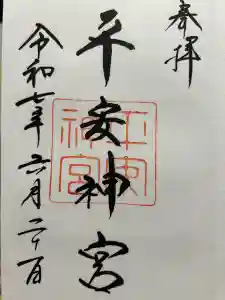 奉拝
平安神宮
平安神宮
令和七年六月二十百